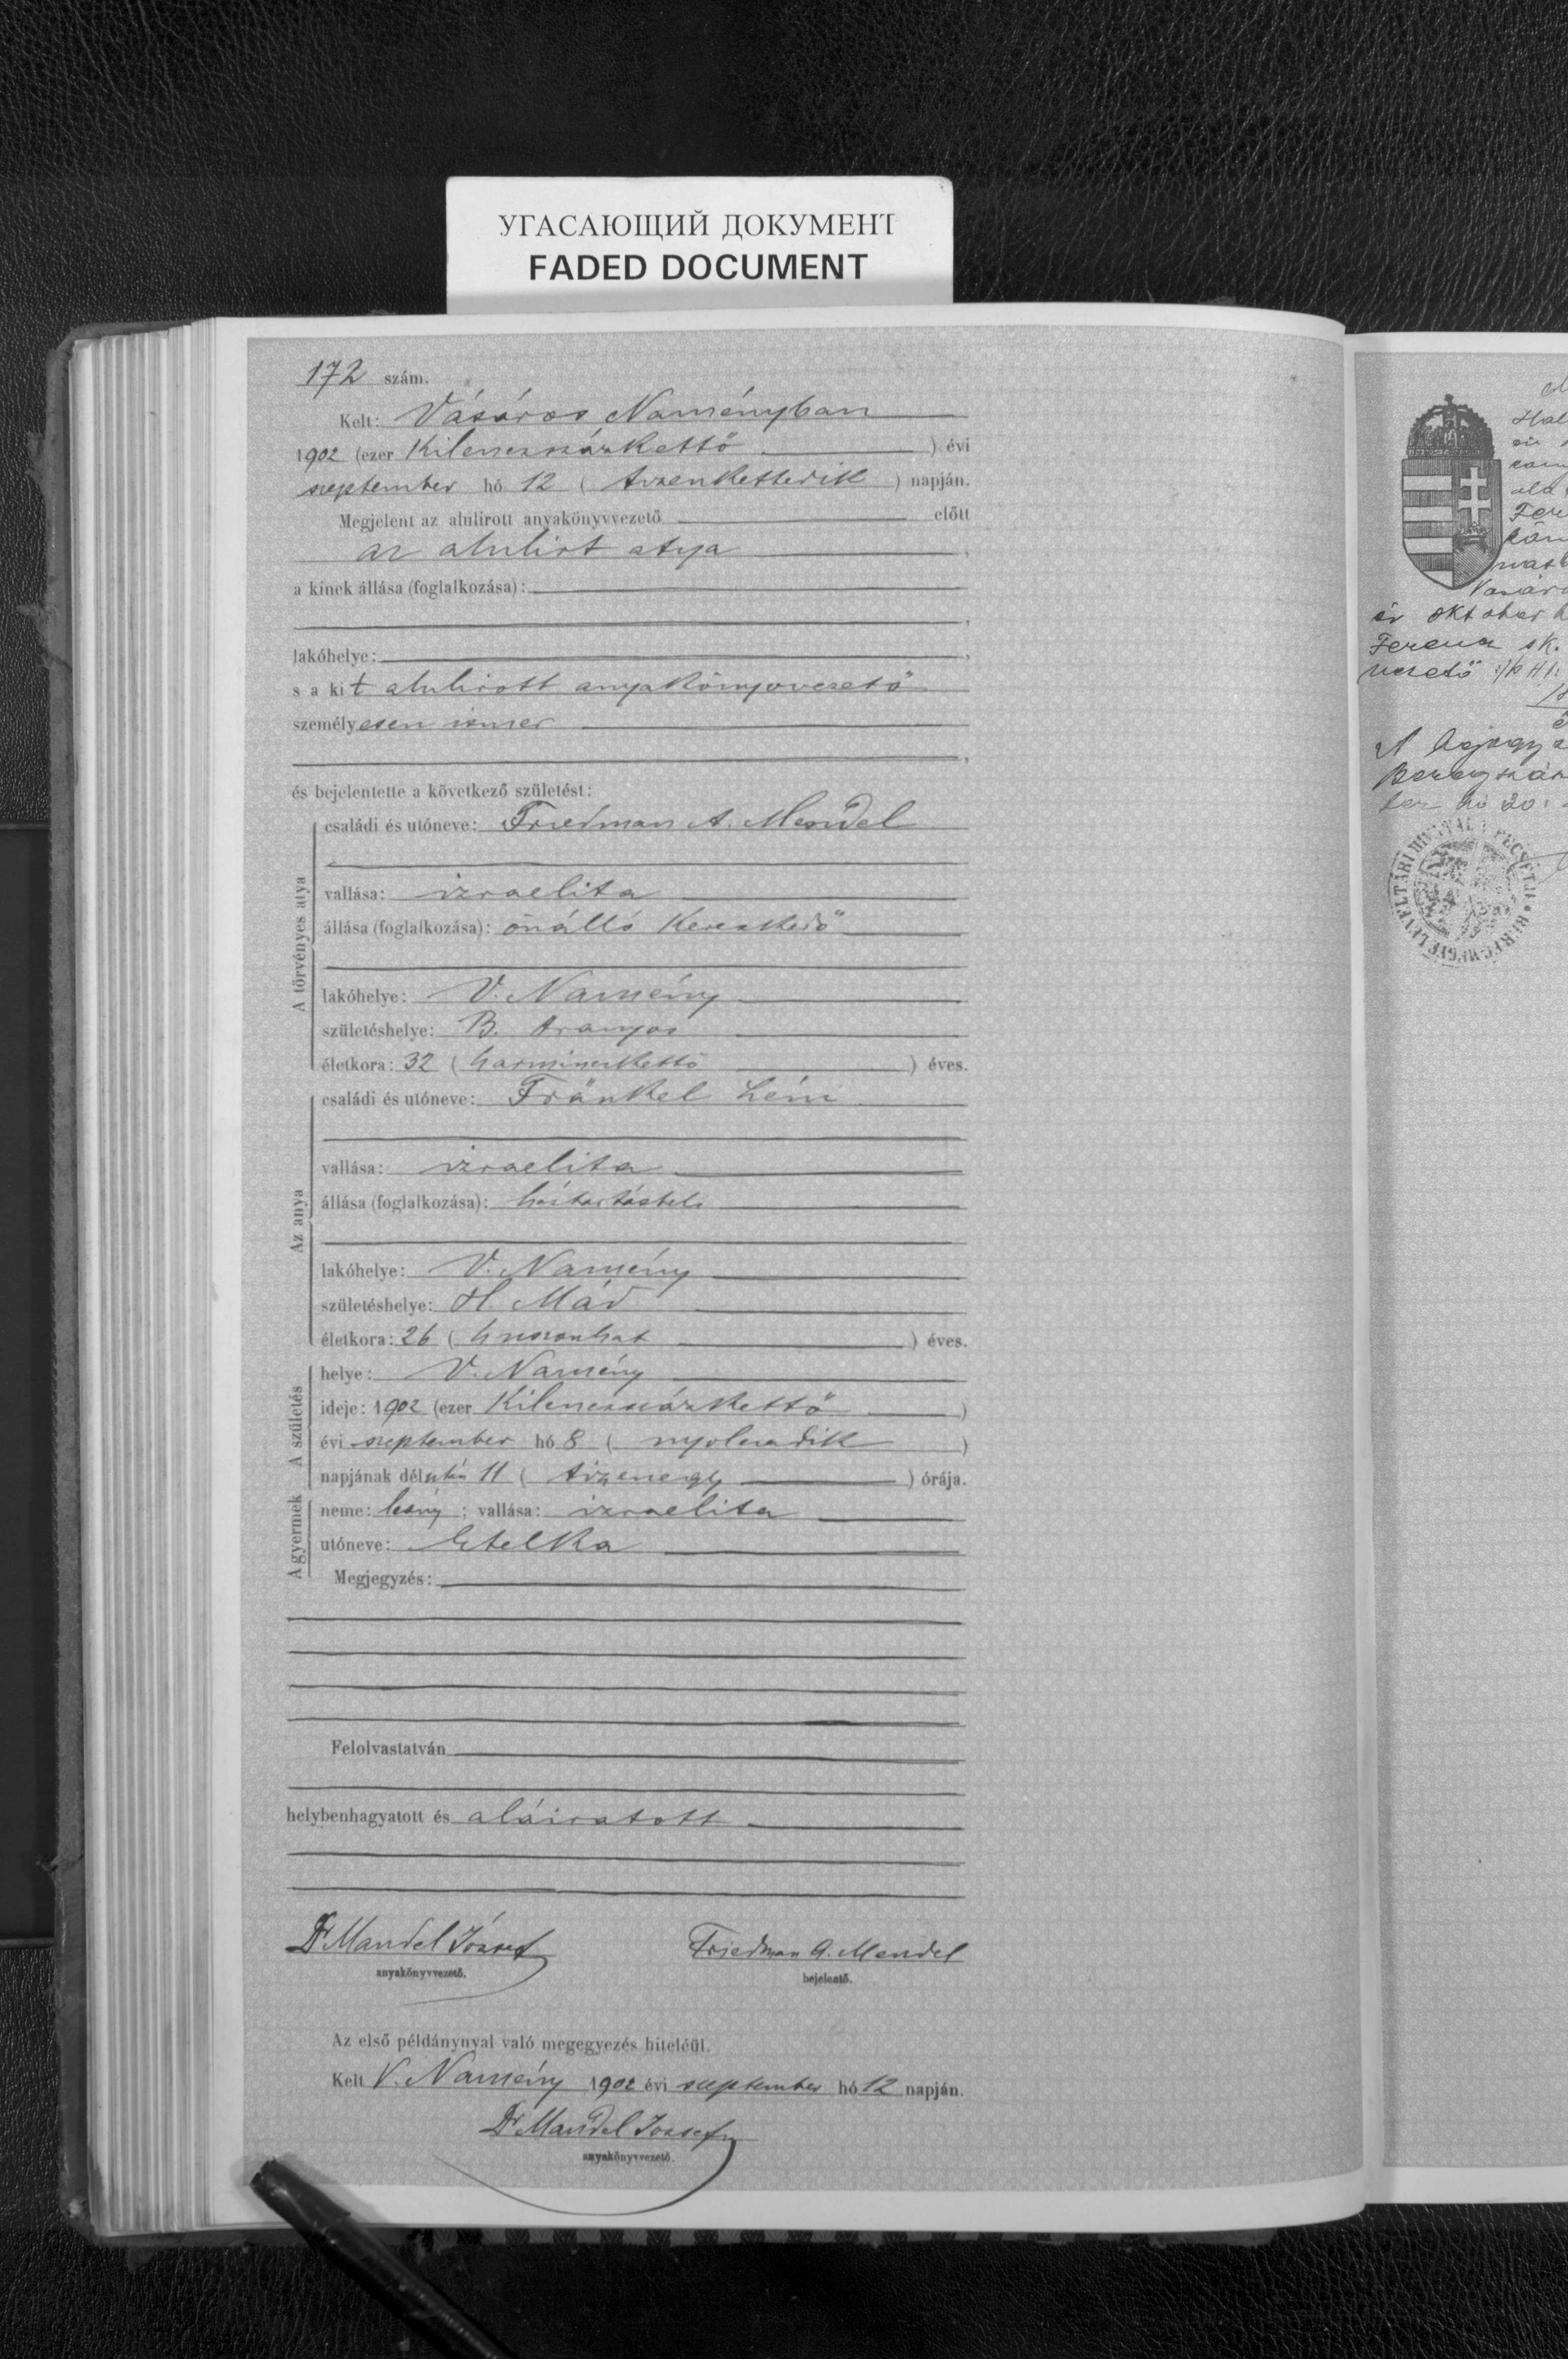 УГАСАЮЩИЙ ДОКУМЕНТ
FADED DOCUMENT
172 szám.
Kelt: Vásáros Naményban
1902 (ezer Kilencszázkettő ) évi
szeptember hó 12 ( tizenkettedik ) napján.
Megjelent az alulirott anyakönyvvezető előtt
az alulirt atya ,
a kinek állása (foglalkozása):
,
lakóhelye: ,
s a kit alulirott anyakönyvvezető
személyesen ismer
,
és bejelentette a következő születést:
A törvényes atya
családi és utóneve: Friedman A. Mendel
vallása: izraelita
állása (foglalkozása): önálló Kereskedő
lakóhelye: V. Namény
születéshelye: B. Aranyos
életkora: 32 ( harminckettő ) éves.
Az anya
családi és utóneve: Fränkel Léni
vallása: izraelita
állása (foglalkozása): háztartásbeli
lakóhelye: V. Namény
születéshelye: H. Mád
életkora: 26 ( huszonhat ) éves.
A születés
helye: V. Namény
ideje: 1902 (ezer Kilencszázkettő )
évi szeptember hó 8 ( nyolcadik )
napjának délután 11 ( tizenegy ) órája.
A gyermek
neme: leány ; vallása: izraelita
utóneve: Etelka
Megjegyzés:
Felolvastatván
helybenhagyatott és aláiratott
Dr Mandel József
anyakönyvvezető.
Friedman A. Mendel
bejelentő.
Az első példánynyal való megegyezés hiteléül.
Kelt V. Namény 1902 évi szeptember hó 12 napján.
Dr Mandel József
anyakönyvvezető.
Vásáro
év október h
Ferencz sk.
vezető